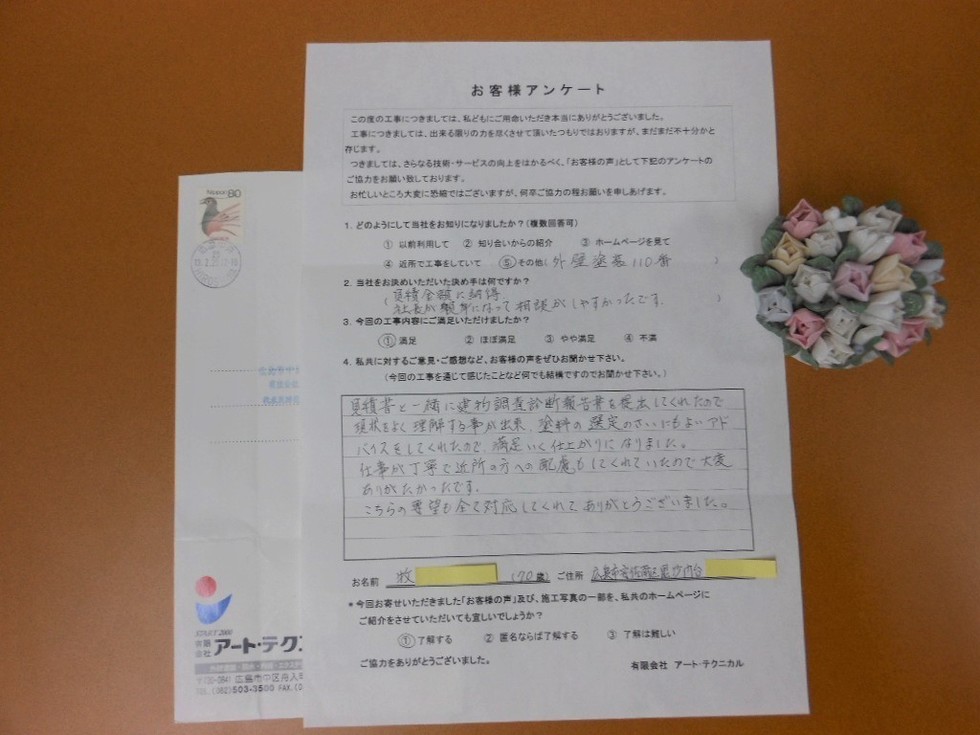 お客様アンケート
この度の工事につきましては、私どもにご用命いただき本当にありがとうございました。
工事につきましては、出来る限りの力を尽くさせて頂いたつもりではおりますが、まだまだ不十分かと
存じます。
つきましては、さらなる技術・サービスの向上をはかるべく、「お客様の声」として下記のアンケートの
ご協力をお願い致しております。
お忙しいところ大変に恐縮ではございますが、何卒ご協力の程お願いを申しあげます。
1. どのようにして当社をお知りになりましたか？(複数回答可)
① 以前利用して ② 知り合いからの紹介 ③ ホームページを見て
④ 近所で工事をしていて ⑤ その他( 外壁塗装110番 )
2. 当社をお決めいただいた決め手は何ですか？
( 見積金額に納得
社長が親身になって相談がしやすかったです。 )
3. 今回の工事内容にご満足いただけましたか？
① 満足 ② ほぼ満足 ③ やや満足 ④ 不満
4. 私共に対するご意見・ご感想など、お客様の声をぜひお聞かせ下さい。
(今回の工事を通じて感じたことなど何でも結構ですのでお聞かせ下さい。)
見積書と一緒に建物調査診断報告書を提出してくれたので
現状をよく理解する事が出来、塗料の選定のさいにもよいアド
バイスをしてくれたので、満足いく仕上がりになりました。
仕事が丁寧で近所の方への配慮もしてくれていたので大変
ありがたかったです。
こちらの要望も全て対応してくれてありがとうございました。
お名前 牧 (70歳) ご住所 広島市安佐南区毘沙門台
*今回お寄せいただきました「お客様の声」及び、施工写真の一部を、私共のホームページに
ご紹介をさせていただいても宜しいでしょうか？
① 了解する ② 匿名ならば了解する ③ 了解は難しい
ご協力をありがとうございました。
有限会社 アート・テクニカル
NIPPON 80
START 2000
有限会社 アート・テクニ
広島市中区舟入
TEL.(082)503-3500 FAX.(0